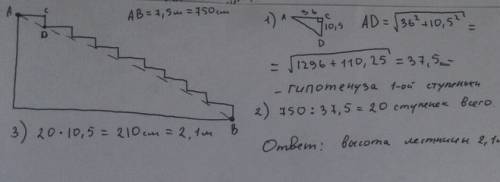 A
C
D
B
AB = 7,5м = 750 см
3) 20 · 10,5 = 210 см = 2,1 м
1) A 36 C 10,5 D AD = √36² + 10,5² =
= √1296 + 110,25 = 37,5 см
- гипотенуза 1-ой ступеньки
2) 750 : 37,5 = 20 ступенек всего
Ответ: высота лестницы 2,1